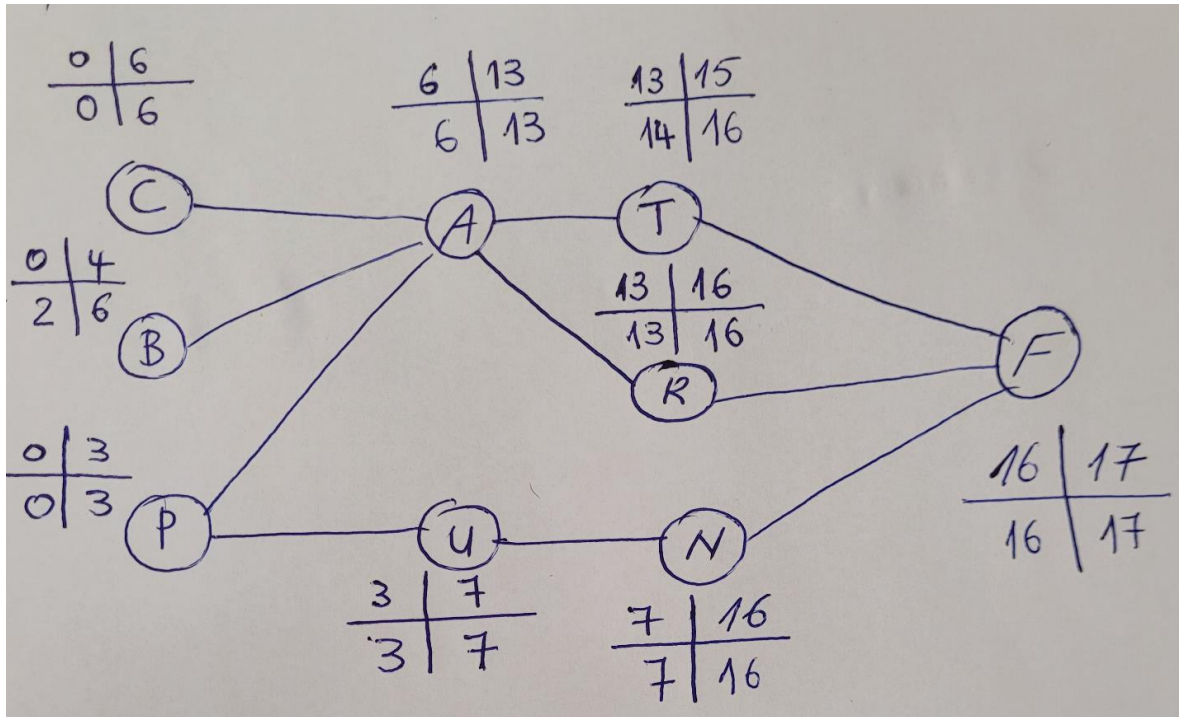 0 6
0 6
6 13
6 13
13 15
14 16
C
A
T
0 4
2 6
B
13 16
13 16
R
F
0 3
0 3
P
U
N
16 17
16 17
3 7
3 7
7 16
7 16